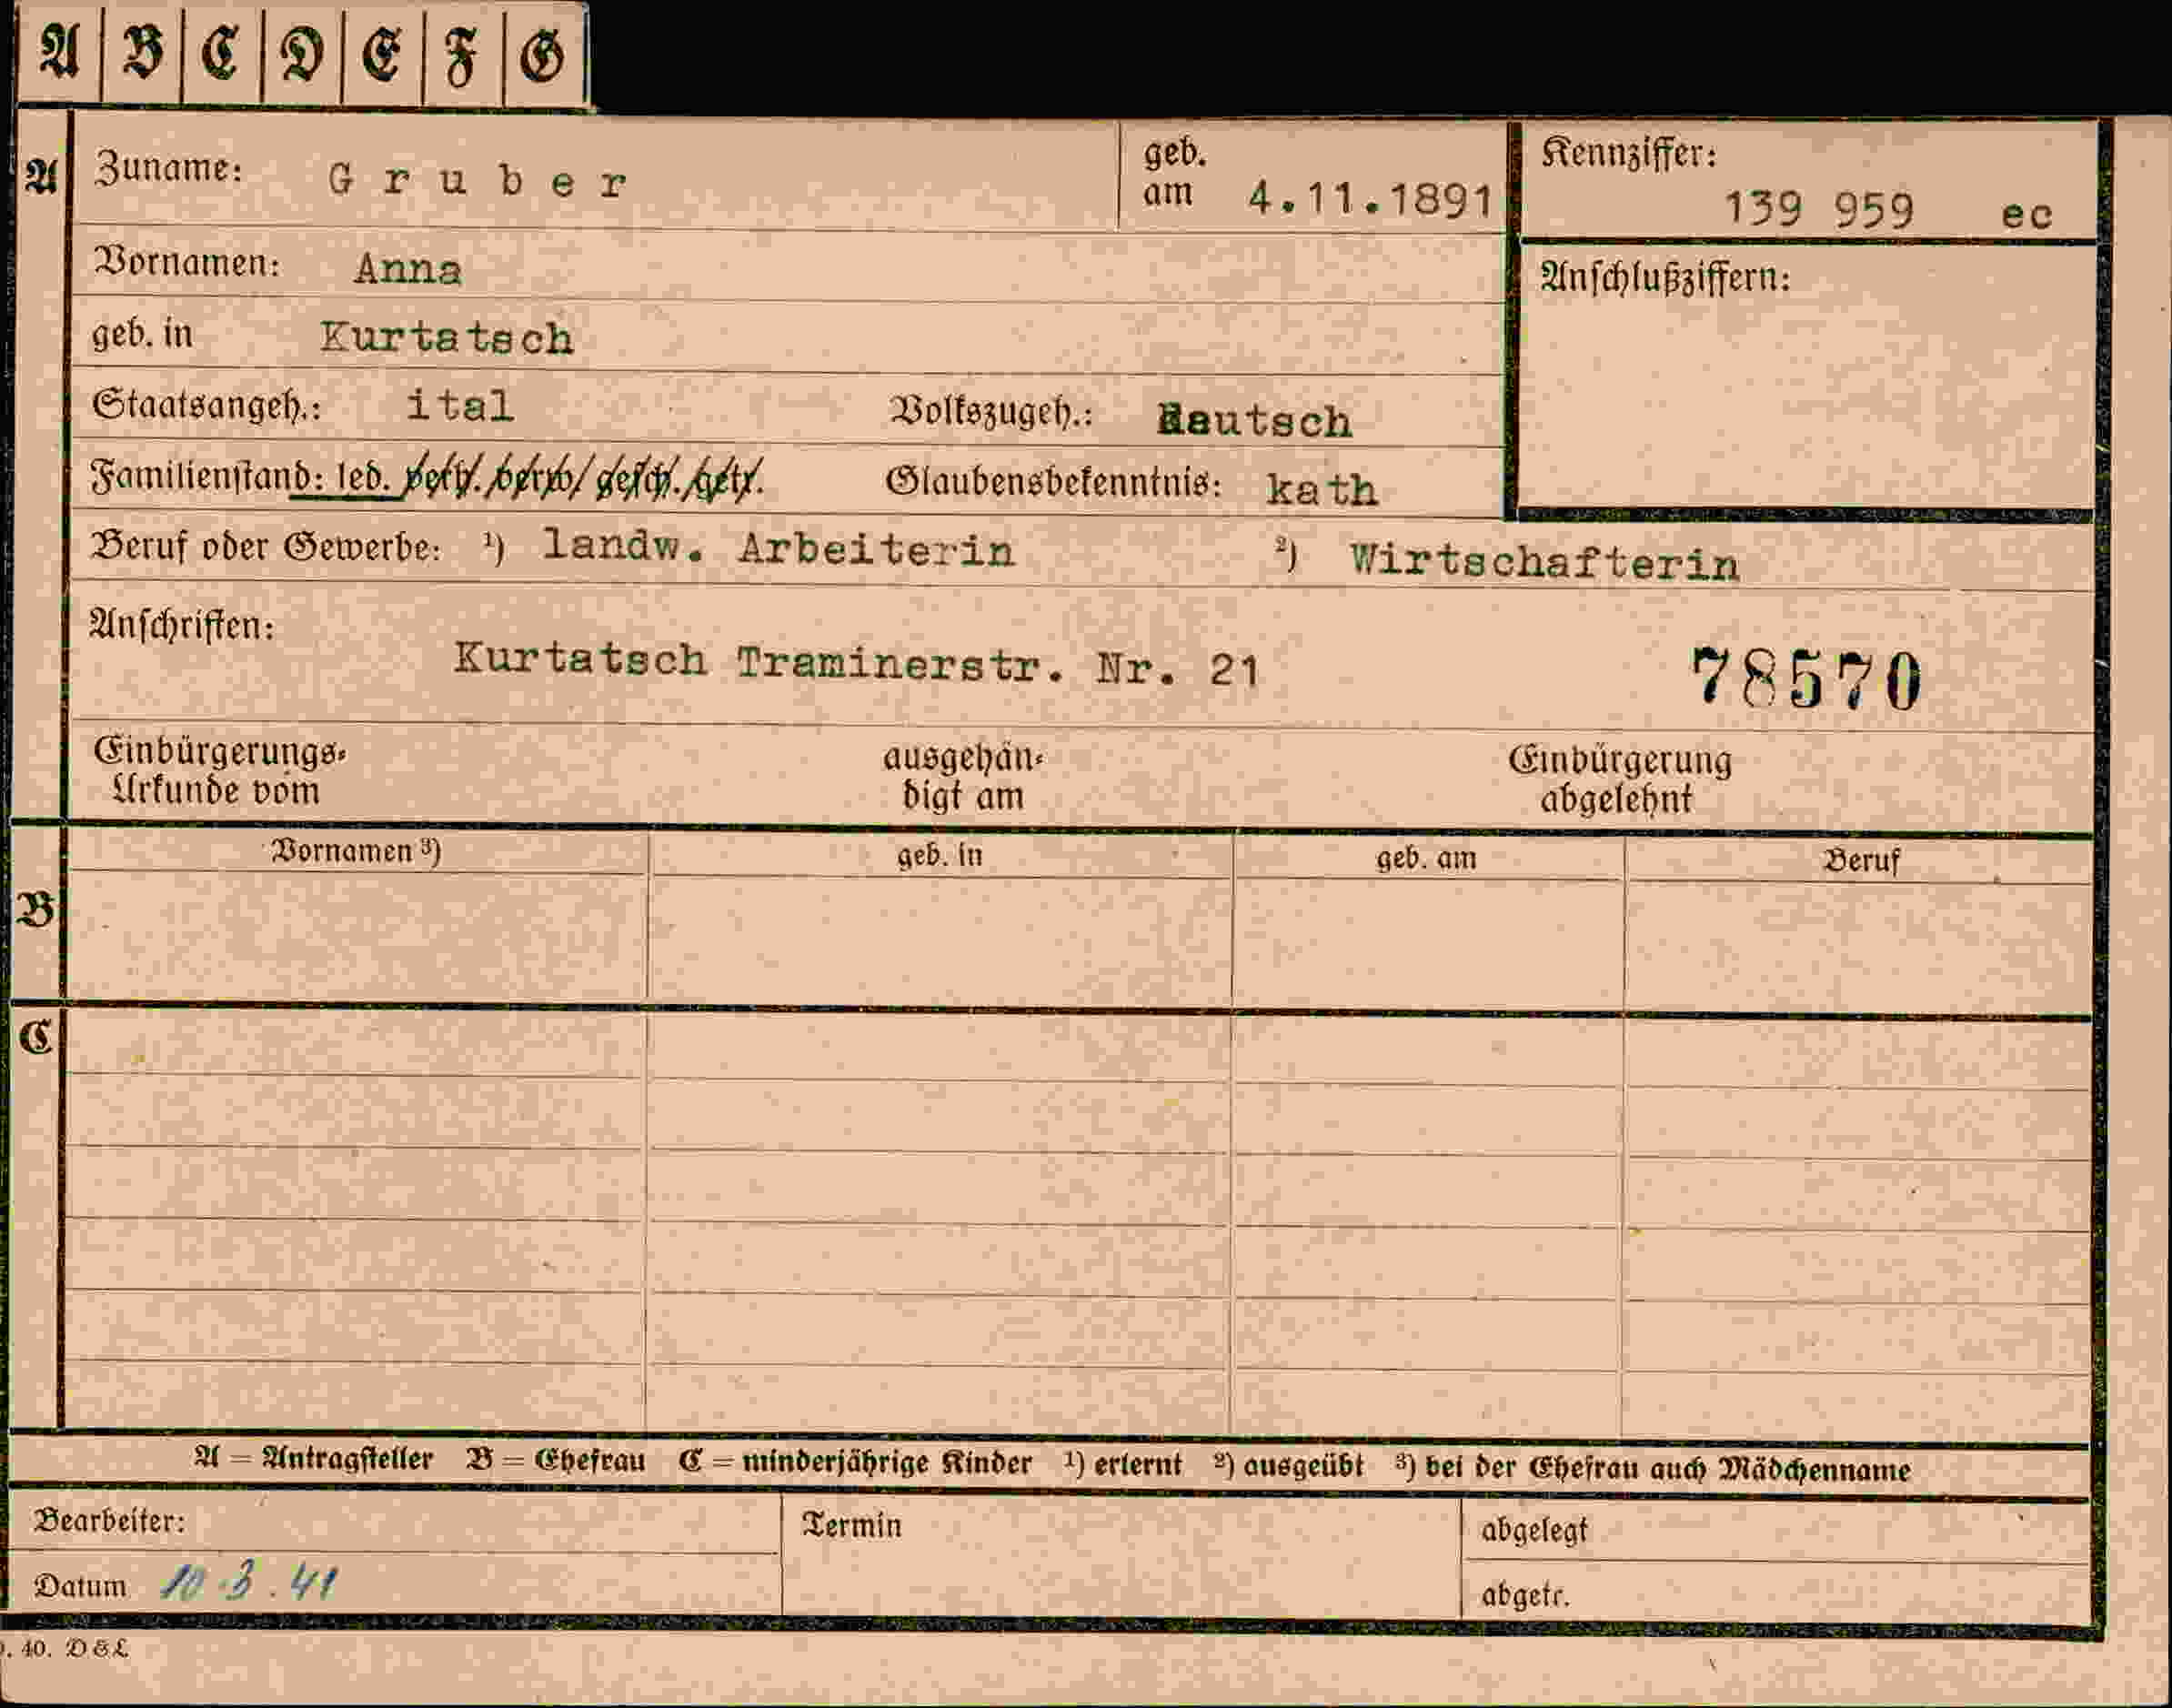 A B C D E F G
A Zuname: Gruber geb. am 4.11.1891 Kennziffer: 139 959 ec
Vornamen: Anna
Anschlußziffern:
geb. in Kurtatsch
Staatsangeh.: ital Volkszugeh.: Deutsch
Familienstand: led. verh. verw. gesch. getr. Glaubensbekenntnis: kath
Beruf oder Gewerbe: ¹) landw. Arbeiterin ²) Wirtschafterin
Anschriften:
Kurtatsch Traminerstr. Nr. 21 78570
Einbürgerungs-
Urkunde vom
ausgehän-
digt am
Einbürgerung
abgelehnt
Vornamen ³) geb. in geb. am Beruf
B
C
A = Antragsteller B = Ehefrau C = minderjährige Kinder ¹) erlernt ²) ausgeübt ³) bei der Ehefrau auch Mädchenname
Bearbeiter: Termin abgelegt
Datum 10.3.41 abgetr.
. 40. D&L